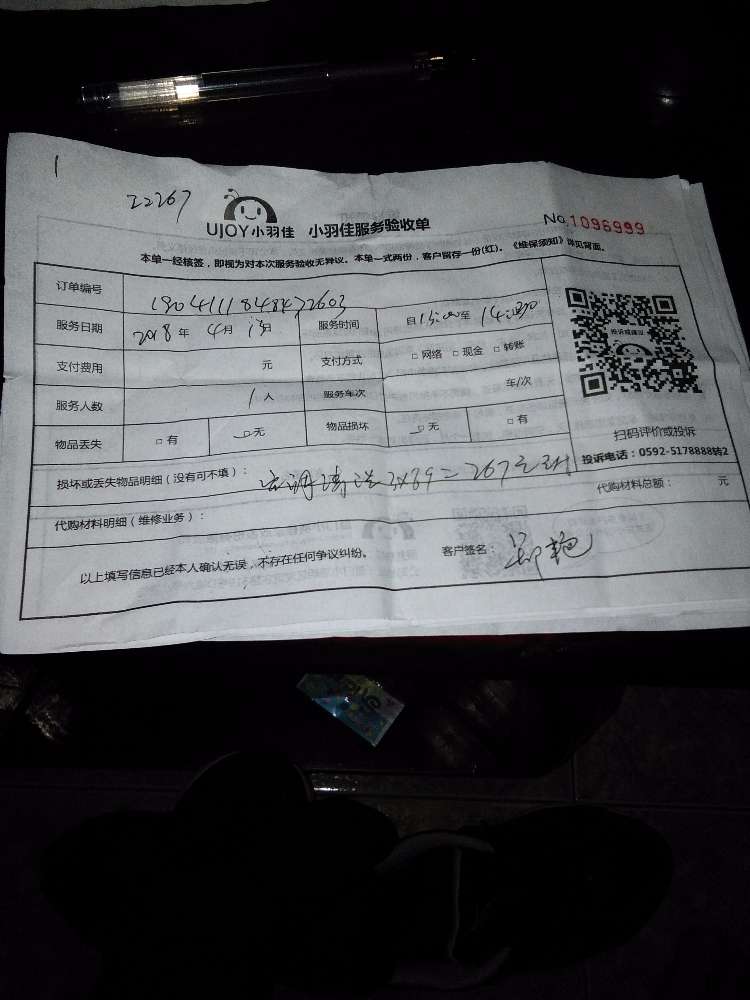 1
22267
UJOY小羽佳 小羽佳服务验收单 No.1096999
本单一经核签，即视为对本次服务验收无异议。本单一式两份，客户留存一份(红)。《维保须知》详见背面。
订单编号
服务日期 2018年 4月 13日 服务时间 自13:00至14:
支付费用 元 支付方式 □网络 □现金 □转账
服务人数 1人 服务车次 车/次
物品丢失 □有 □无 物品损坏 □无 □有
投诉或建议
扫码评价或投诉
投诉电话：0592-5178888转2
损坏或丢失物品明细（没有可不填）： 空调清洗3×89=267元
代购材料明细（维修业务）： 代购材料总额： 元
以上填写信息已经本人确认无误，不存在任何争议纠纷。 客户签名：